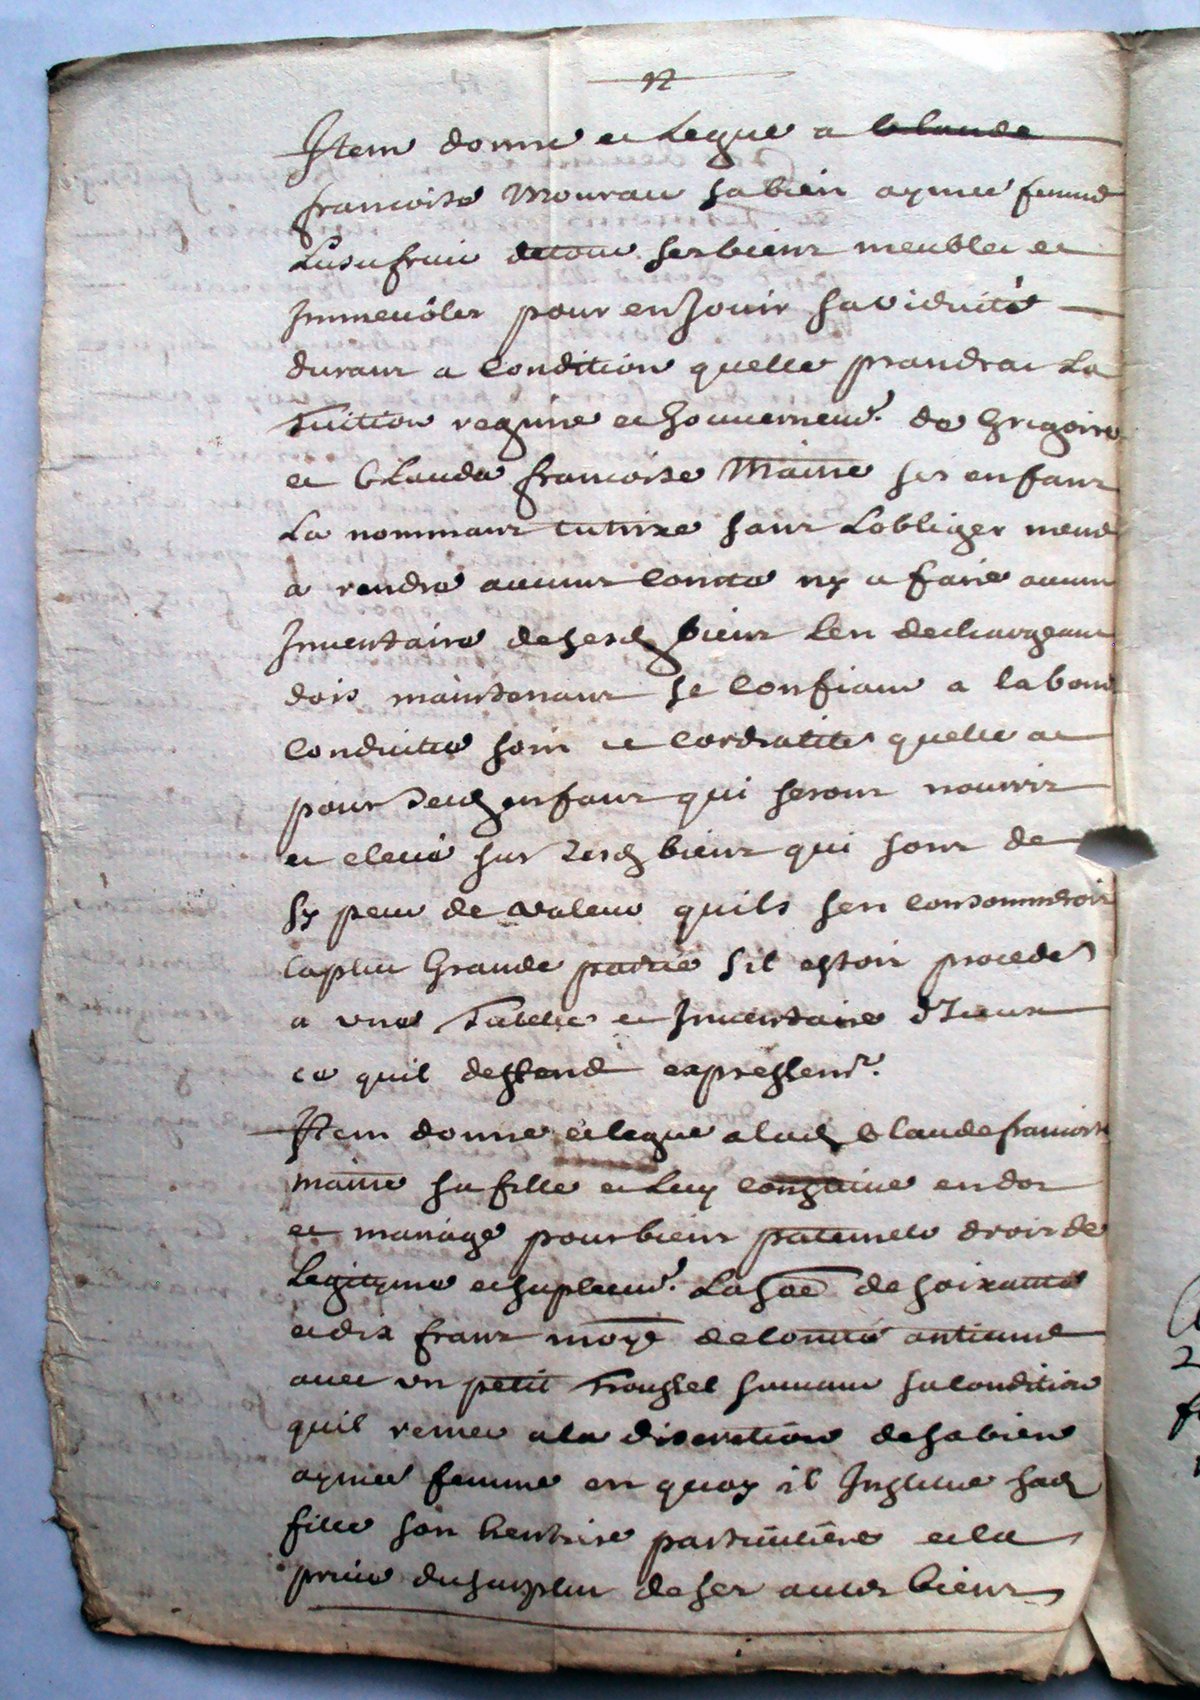 12
Item donne et legue a Claude
francoise Mourau sa bien aymee femme
Lusufruit detous ses biens meubles et
Immeubles pour en Jouir sa viduité
durant a condition quelle prandrat La
tuition regime et Gouvernem.t de Grigoire
et Claude francoise Maitre ses enfans
La nommant tutrixe sans Lobliger mesme
a rendre aucuns conte ny a faire aucun
Inventaire desesd biens len deschargeant
dois maintenant se confiant a la bone
conduitte soin et cordialité quelle at
pour sesd enfans qui seront nourris
et elevé sur sesd biens qui sont de
sy peu de valeur quils sen consommeroit
la plus Grande partie sil estoit procedé
a une et Inventaire d'Iceux
ce quil deffend expressem.t
Item donne et legue a lad Claude francoise
maitre sa fille et Luy constitue en dot
et mariage pour biens paternels droit de
Legityme et suplem.t La soê de soixante
et dix frans monê de comté antienne
avec un petit troussel suivant sa condition
quil remet a la discretion de sa bien
aymee femme en quoy il Institue sad
fille son heritiere particuliere et la
prive du surplus de ses autres biens